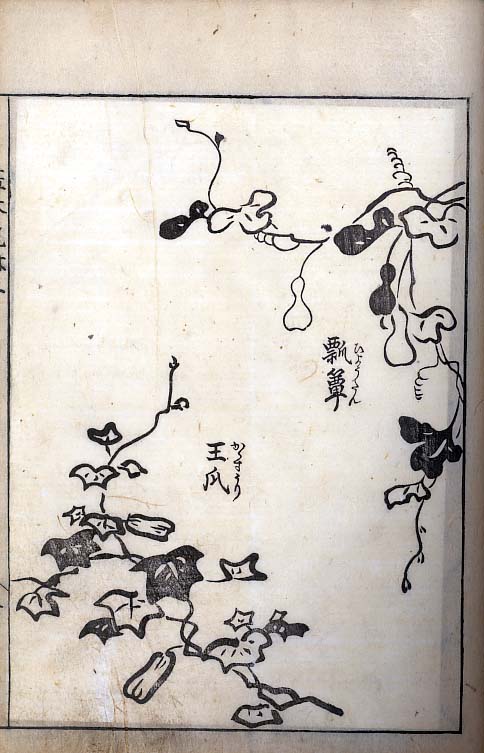 瓢簞
ひようたん
王瓜
からすうり